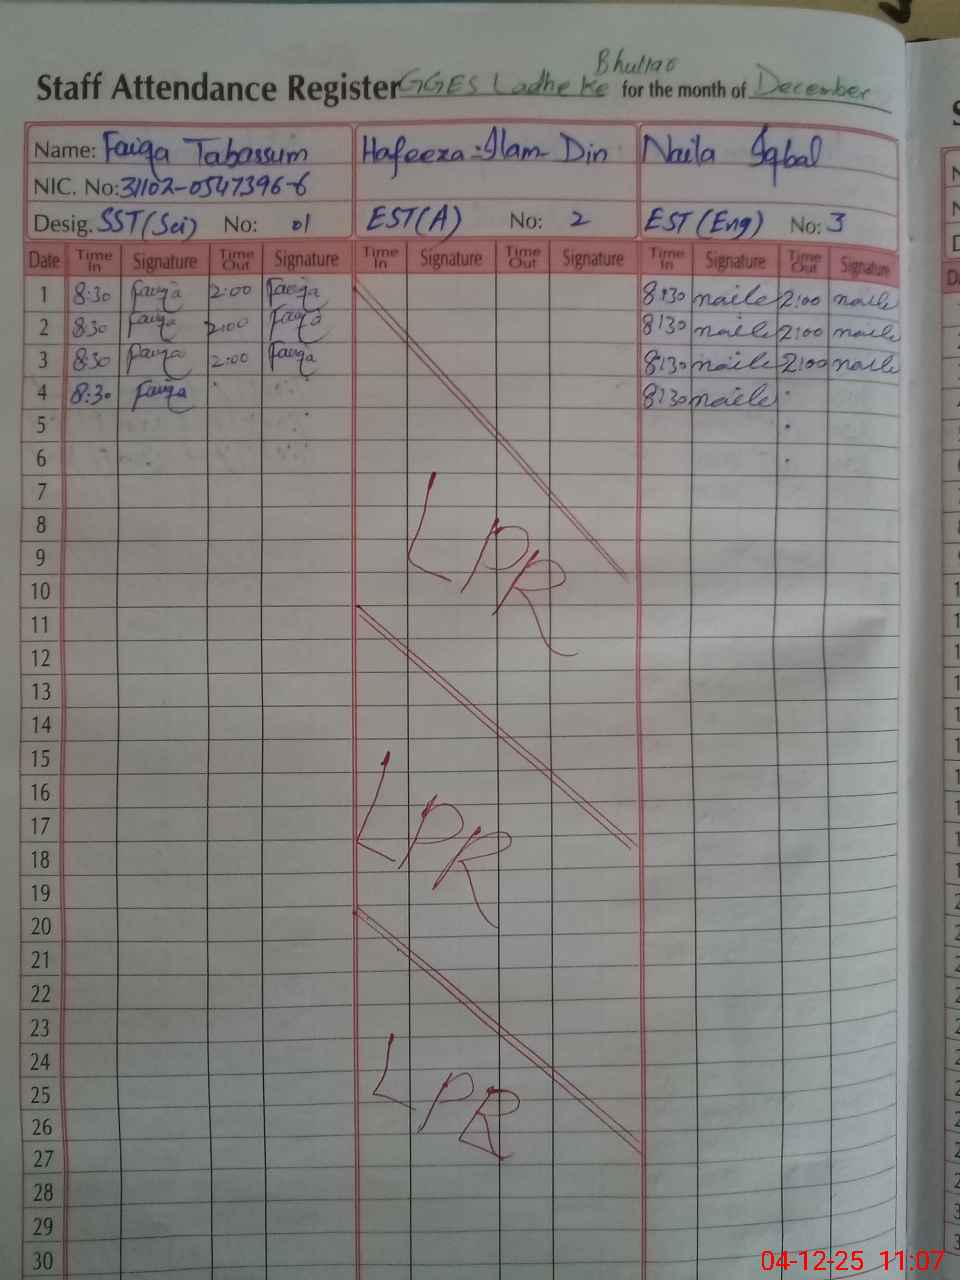 Bhullar
Staff Attendance Register GGES Ladhe Ke for the month of December
Name: Faiqa Tabassum Hafeeza Ilam Din Naila Iqbal
NIC. No: 31102-0547396-6
Desig. SST(Sci) No: 01 EST(A) No: 2 EST(Eng) No: 3
Date Time In Signature Time Out Signature Time In Signature Time Out Signature Time In Signature Time Out Signature
1 8:30 Faiqa 2:00 Faiqa 8:30 naila 2:00 naila
2 8:30 Faiqa 2:00 Faiqa 8:30 naila 2:00 naila
3 8:30 Faiqa 2:00 Faiqa 8:30 naila 2:00 naila
4 8:30 Faiqa 8:30 naila
5
6
7
8
9
LPR
10
11
12
13
14
15
16
17
LPR
18
19
20
21
22
23
24
25
LPR
26
27
28
29
30
04-12-25 11:07